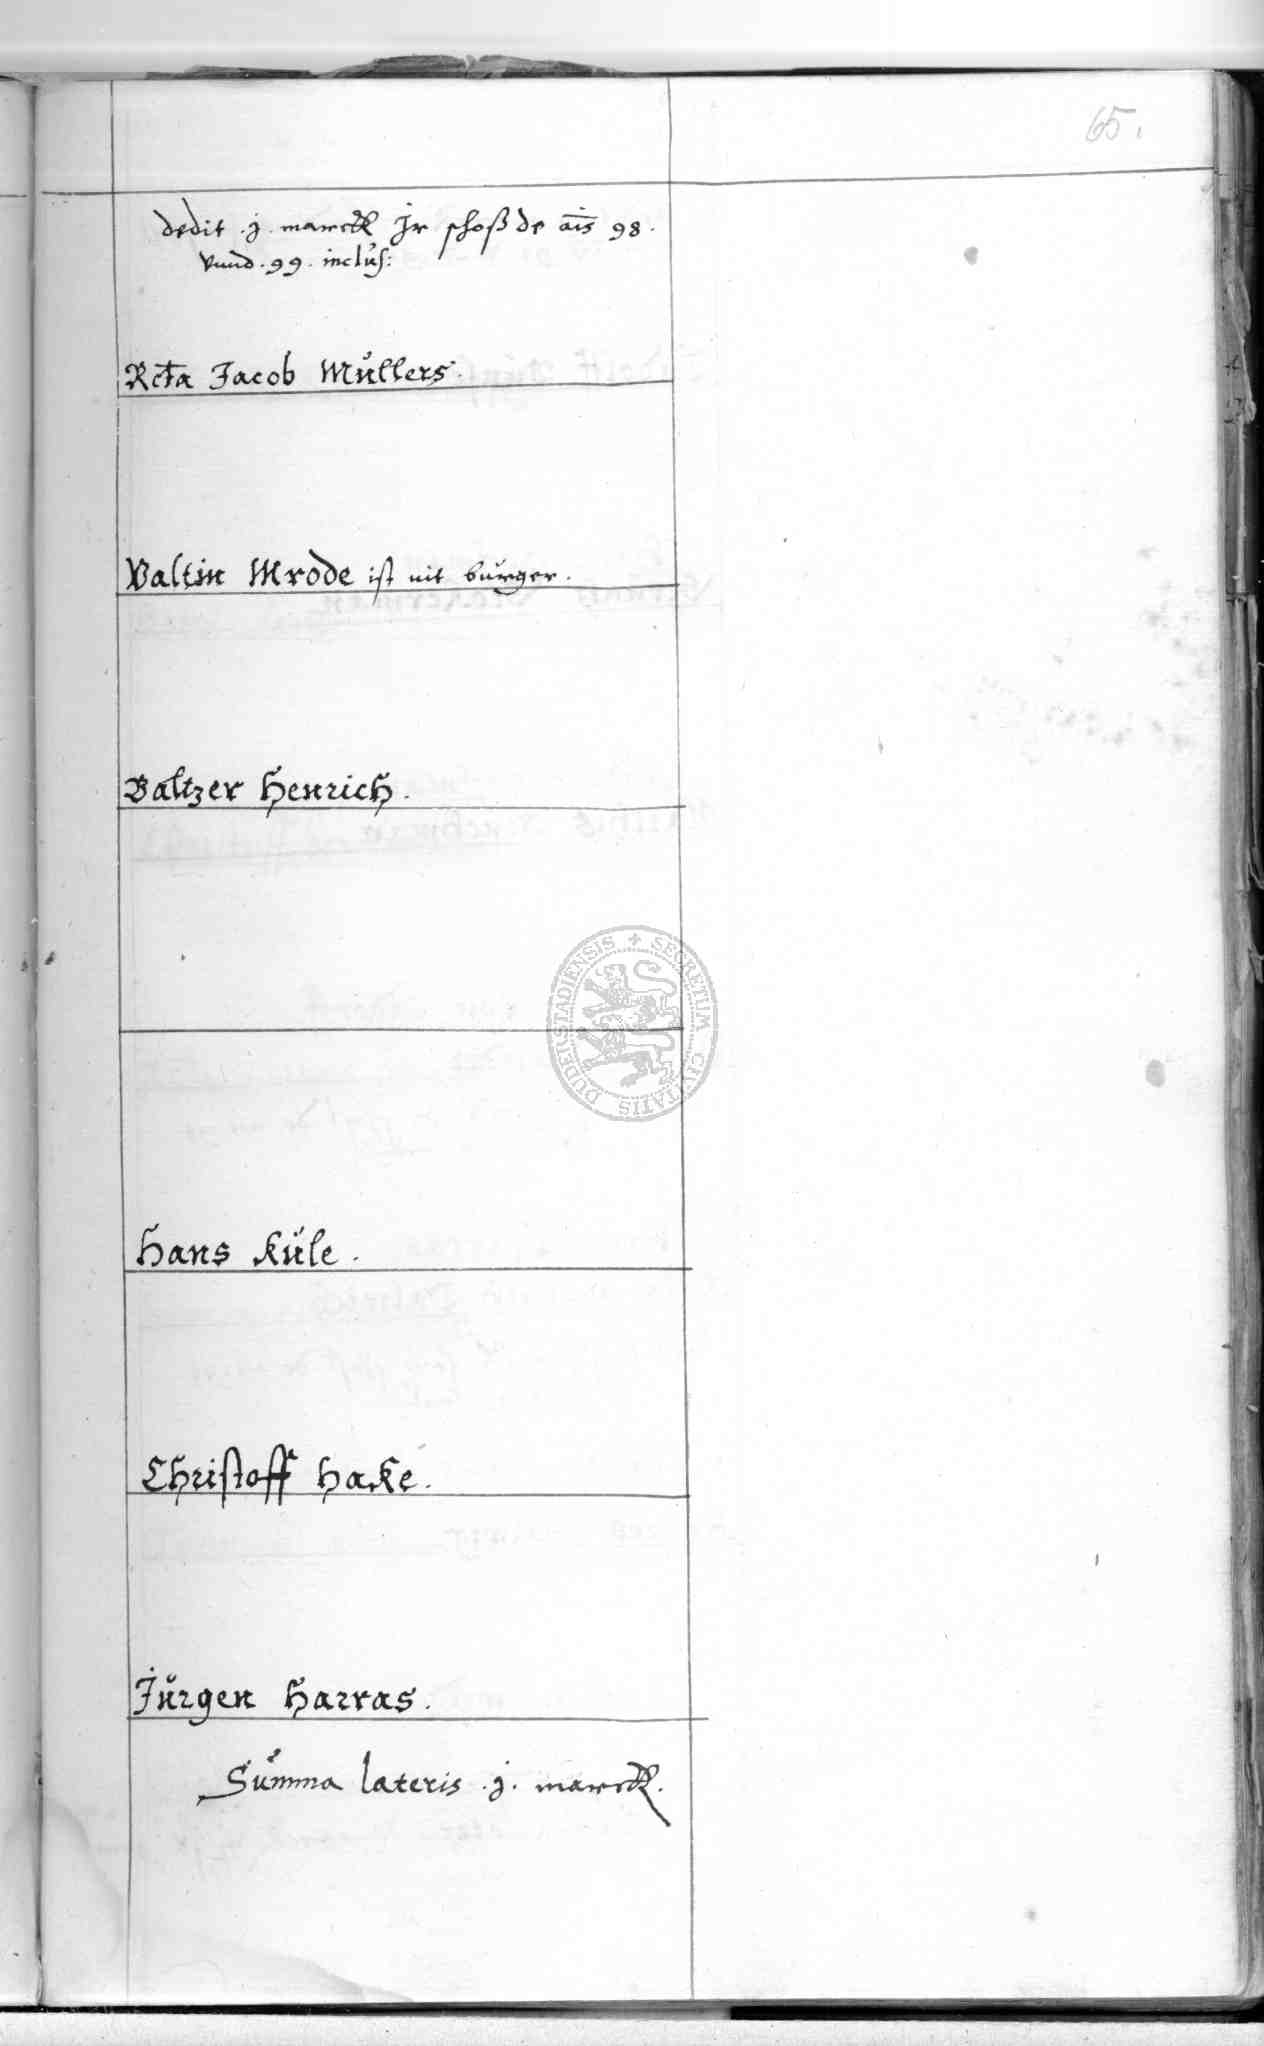 65.
dedit .j. marck Jr schoß de ais 98.
vnnd .99. inclus:
Rcta Jacob Müllers.
Valtin Mrode ist nit burger.
Baltzer Henrich.
DUDERSTADIENSIS + SECRETUM CIVITATIS
Hans Küle.
Christoff Hake.
Jürgen Harras.
Summa lateris .j. marck.